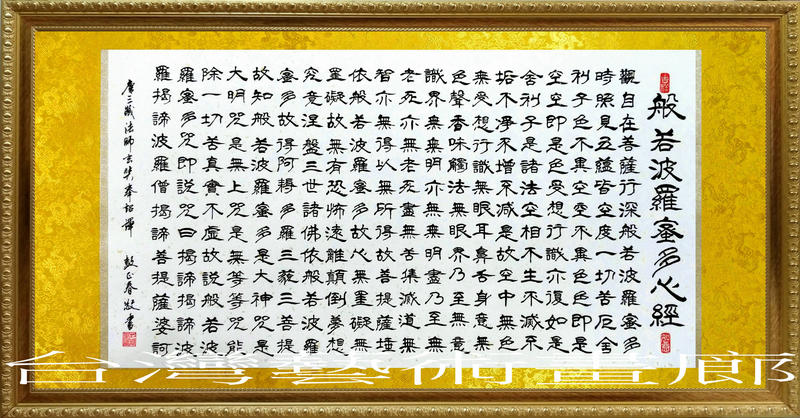 般若波羅蜜多心經
觀自在菩薩行深般若波羅蜜多
時照見五蘊皆空度一切苦厄舍
利子色不異空空不異色色即是
空空即是色受想行識亦復如是
舍利子是諸法空相不生不滅不
垢不淨不增不減是故空中無色
無受想行識無眼耳鼻舌身意無
色聲香味觸法無眼界乃至無意
識界無無明亦無無明盡乃至無
老死亦無老死盡無苦集滅道無
智亦無得以無所得故菩提薩埵
依般若波羅蜜多故心無罣礙無
罣礙故無有恐怖遠離顛倒夢想
究竟涅盤三世諸佛依般若波羅
蜜多故得阿耨多羅三藐三菩提
故知般若波羅蜜多是大神咒是
大明咒是無上咒是無等等咒能
除一切苦真實不虛故說般若波
羅蜜多咒即說咒曰揭諦揭諦波
羅揭諦波羅僧揭諦菩提薩婆訶
唐三藏法師玄奘奉詔譯
台灣藝術畫廊